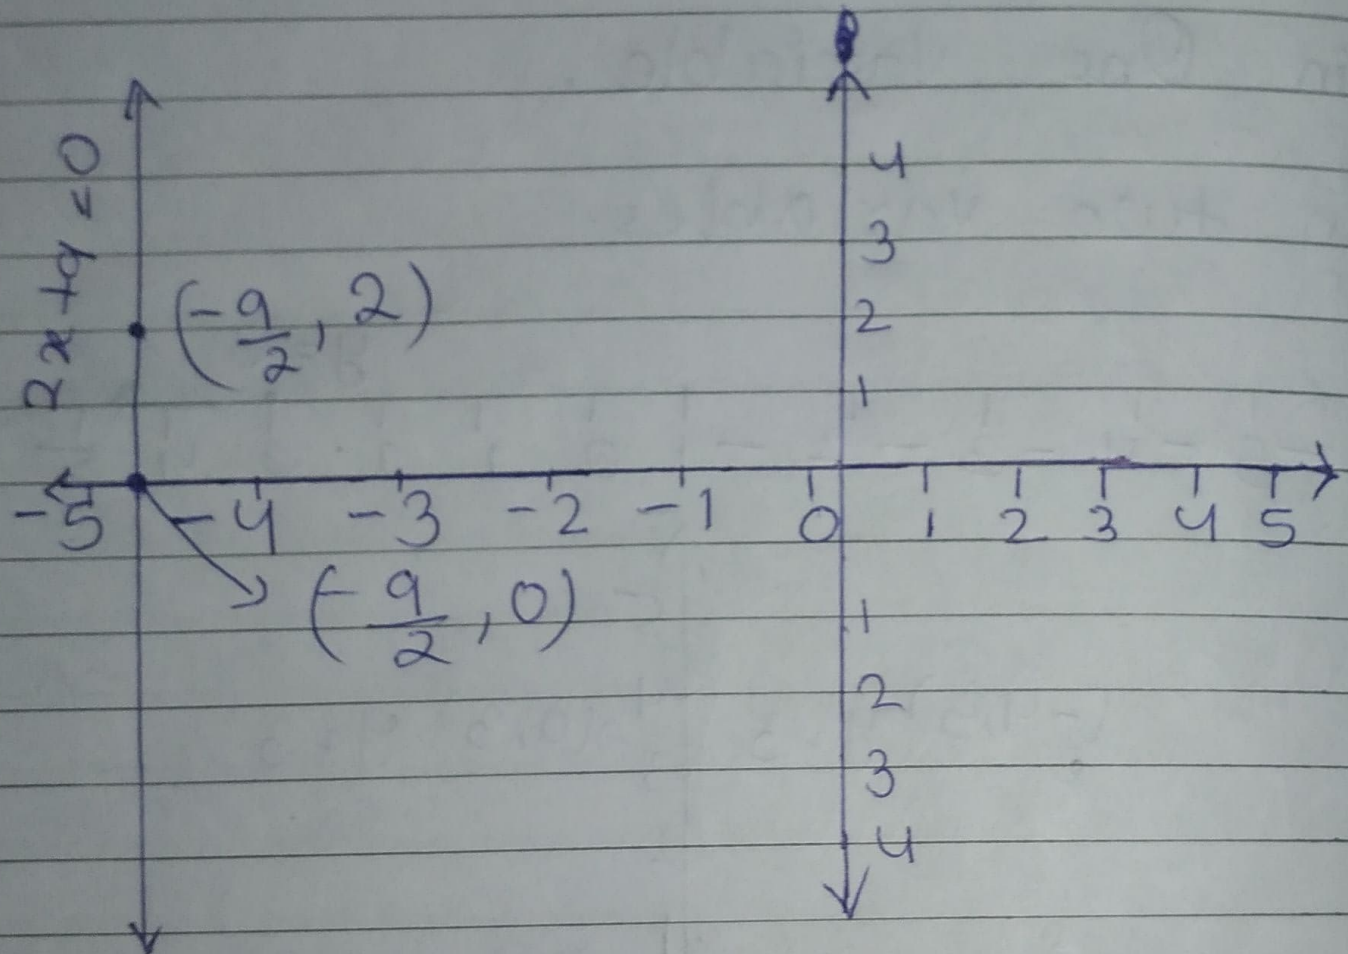 2x+9=0
4
3
(-9/2, 2)
2
1
-5 -4 -3 -2 -1 0 1 2 3 4 5
(-9/2, 0)
1
2
3
4